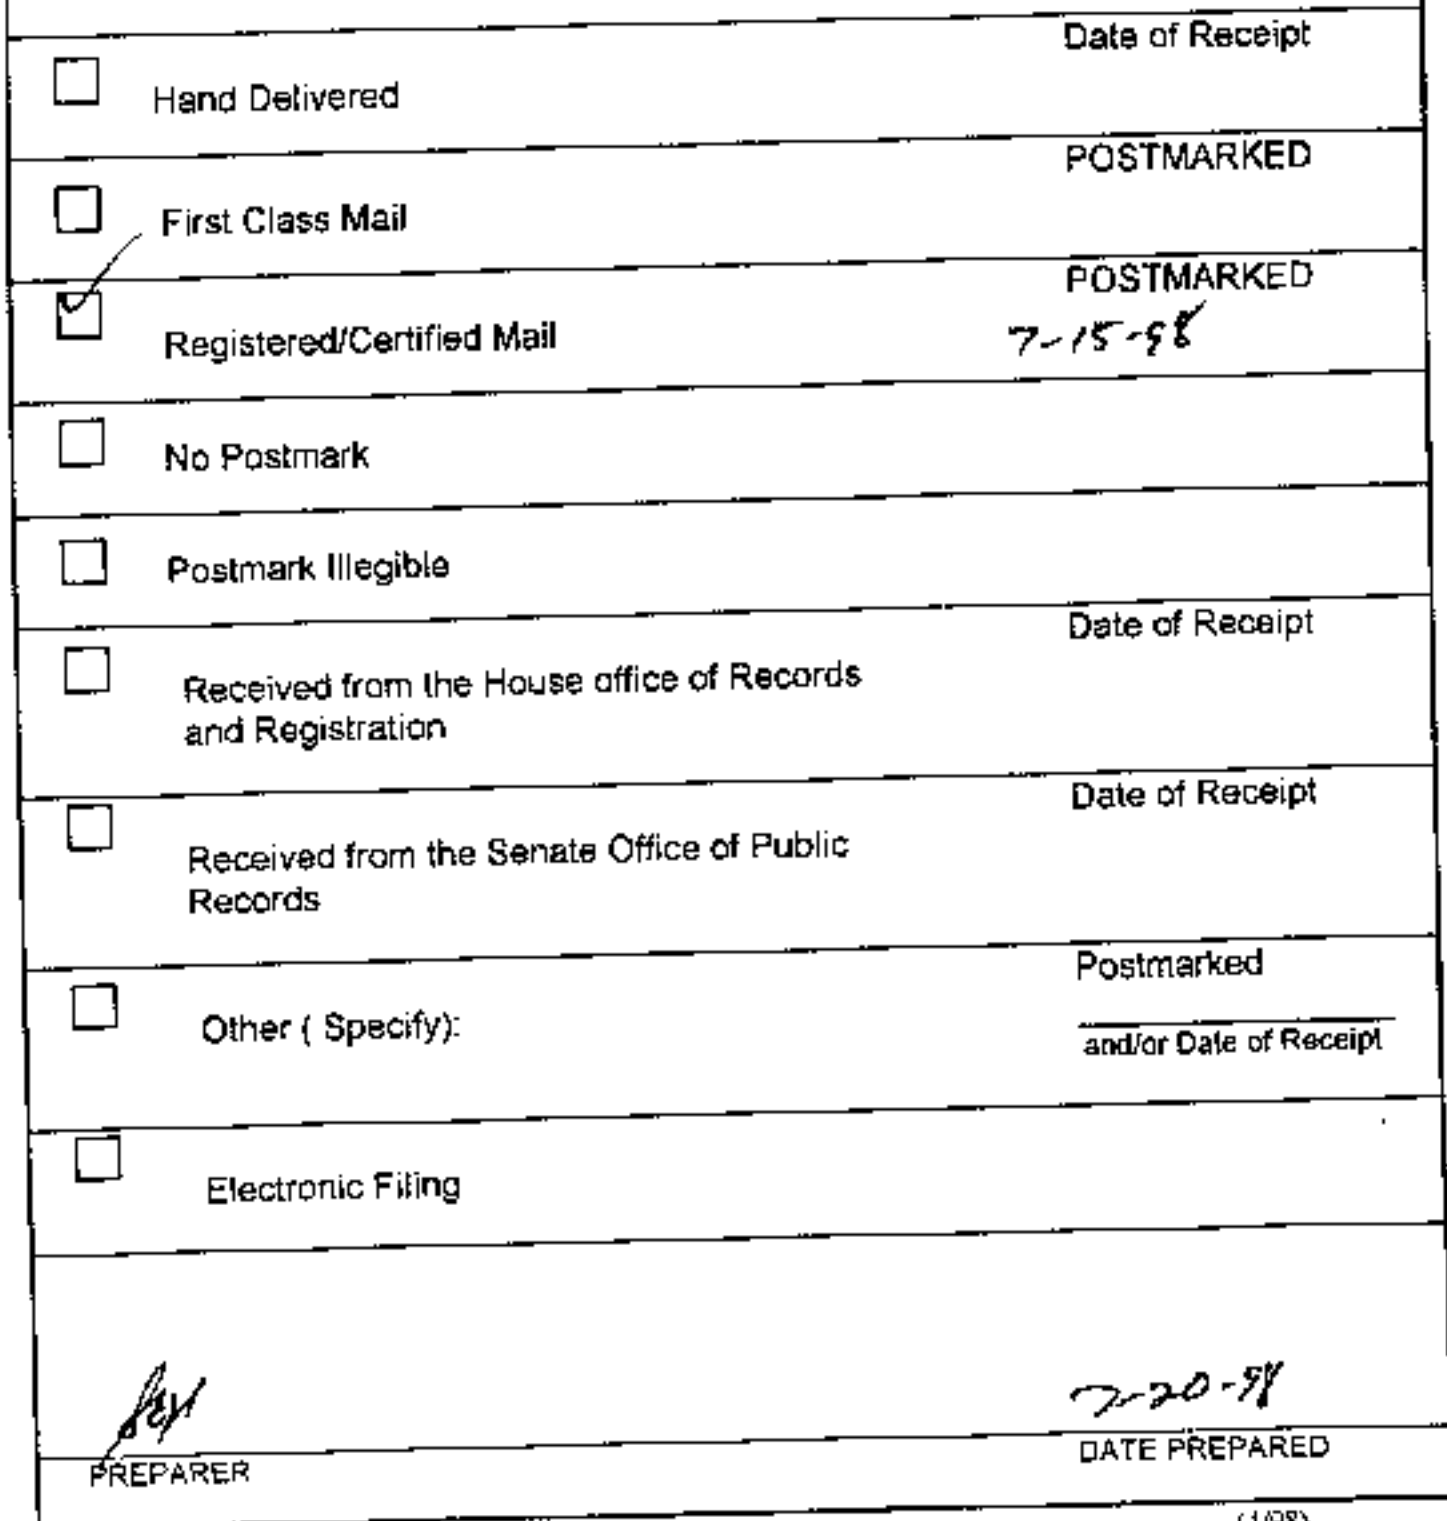 Date of Receipt
Hand Delivered
POSTMARKED
First Class Mail
POSTMARKED
Registered/Certified Mail
7-15-98
No Postmark
Postmark Illegible
Date of Receipt
Received from the House office of Records
and Registration
Date of Receipt
Received from the Senate Office of Public
Records
Postmarked
Other ( Specify):
and/or Date of Receipt
Electronic Filing
7-20-98
PREPARER
DATE PREPARED